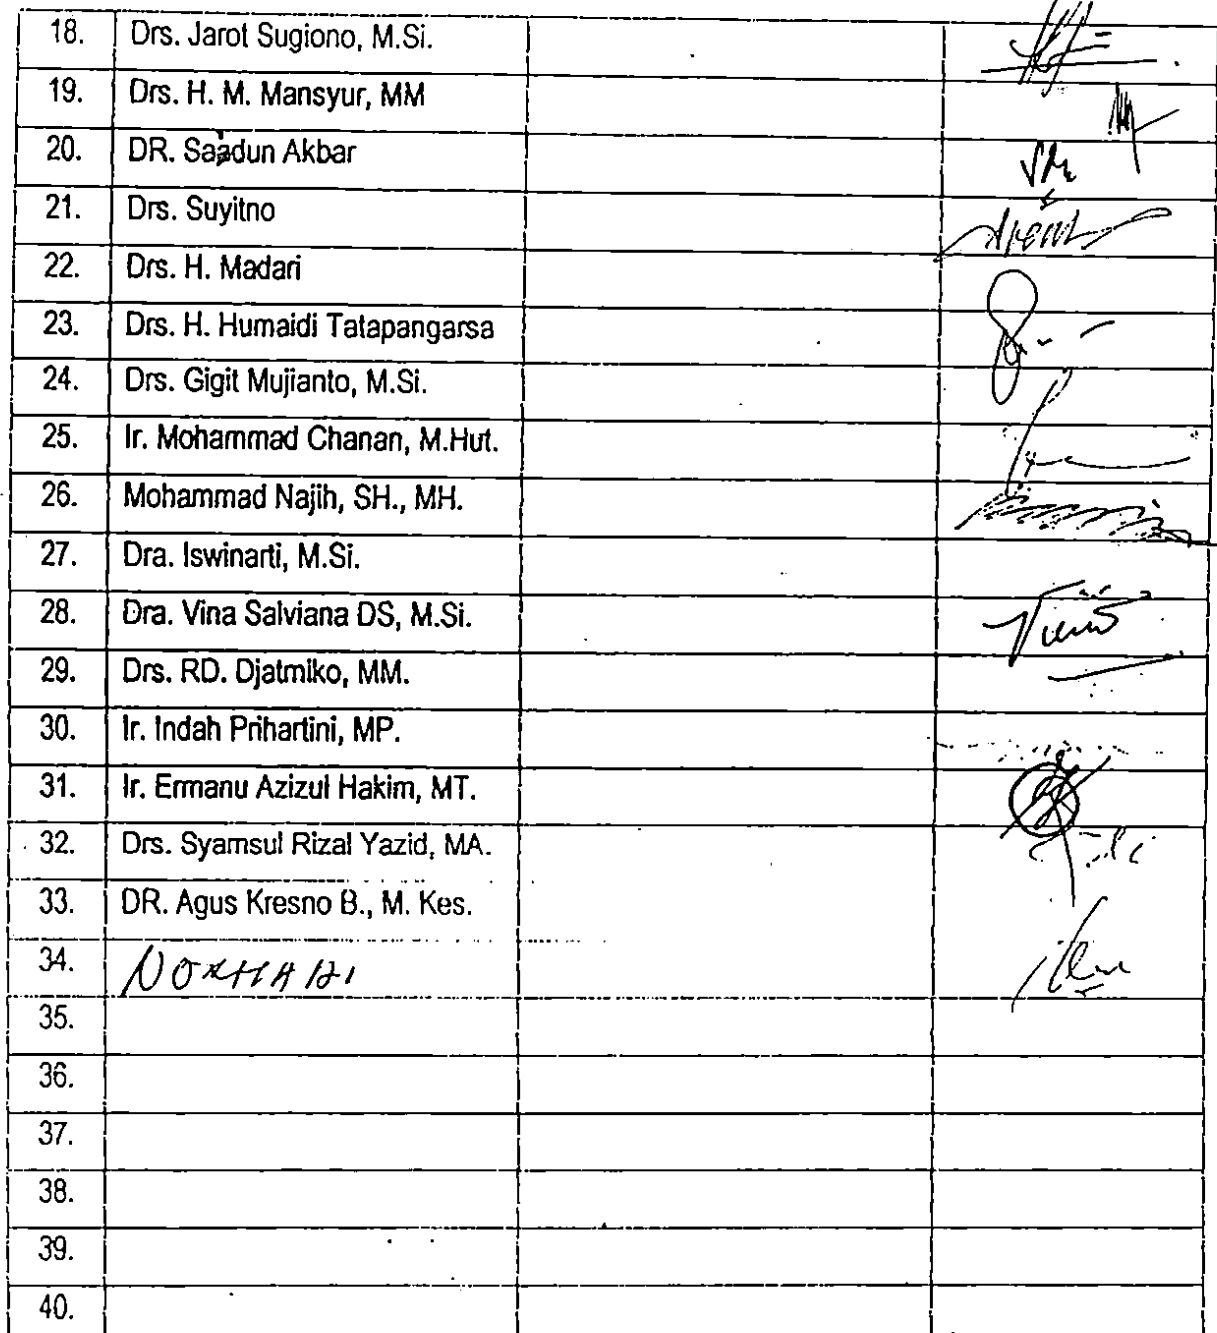 18. Drs. Jarot Sugiono, M.Si.
19. Drs. H. M. Mansyur, MM
20. DR. Sa'adun Akbar
21. Drs. Suyitno
22. Drs. H. Madari
23. Drs. H. Humaidi Tatapangarsa
24. Drs. Gigit Mujianto, M.Si.
25. Ir. Mohammad Chanan, M.Hut.
26. Mohammad Najih, SH., MH.
27. Dra. Iswinarti, M.Si.
28. Dra. Vina Salviana DS, M.Si.
29. Drs. RD. Djatmiko, MM.
30. Ir. Indah Prihartini, MP.
31. Ir. Ermanu Azizul Hakim, MT.
32. Drs. Syamsul Rizal Yazid, MA.
33. DR. Agus Kresno B., M. Kes.
34.
35.
36.
37.
38.
39.
40.